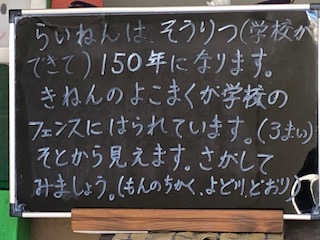 らいねんは、そうりつ(学校が
できて)150年になります。
きねんのよこまくが学校の
フェンスにはられています。(3まい)
そとから見えます。さがして
みましょう。(もんのちかく、よど川どおり)